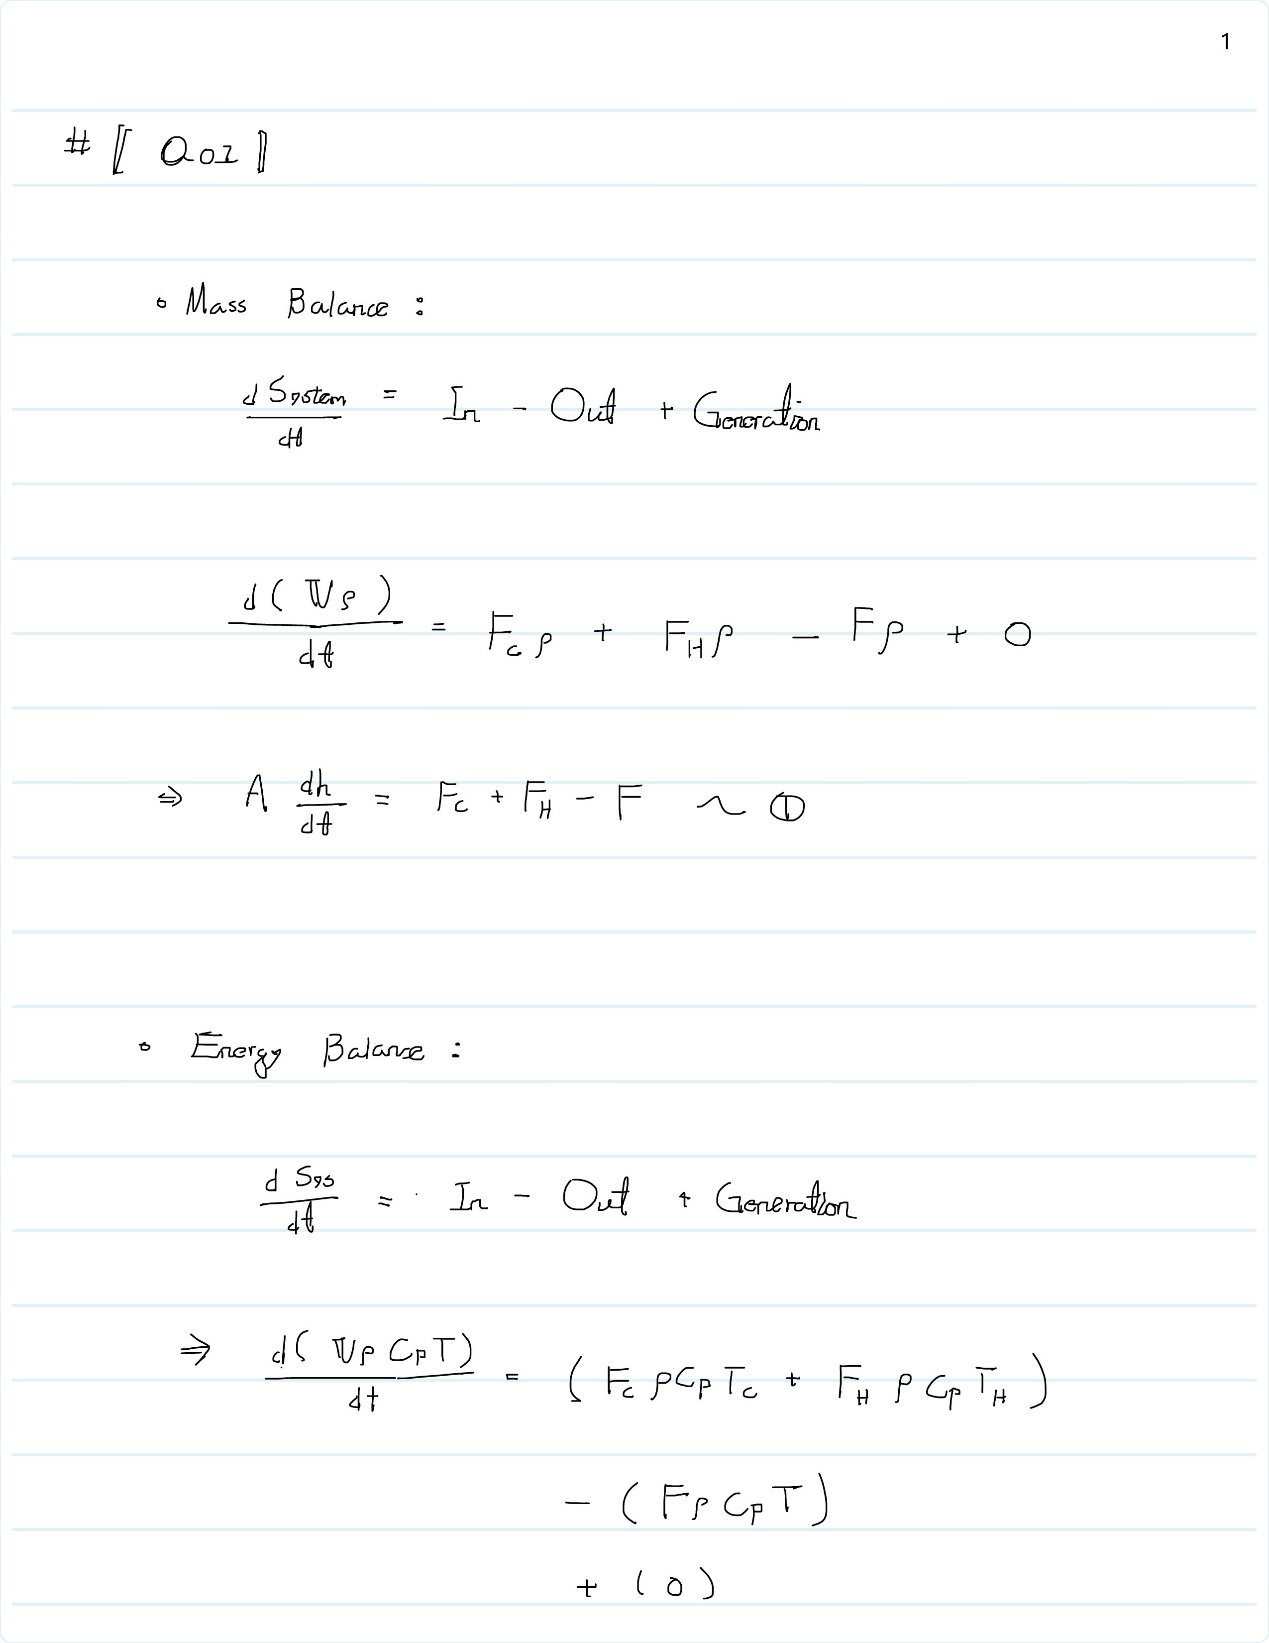 1
# ⟦ Q01 ⟧
∘ Mass Balance :
d System / dt = In - Out + Generation
d( Vρ ) / dt = F_c ρ + F_H ρ - Fρ + 0
⇒ A dh/dt = F_c + F_H - F ~ ①
∘ Energy Balance :
d Sys / dt = In - Out + Generation
⇒ d( Vρ C_p T) / dt = ( F_c ρ C_p T_c + F_H ρ C_p T_H )
- ( Fρ C_p T )
+ ( 0 )